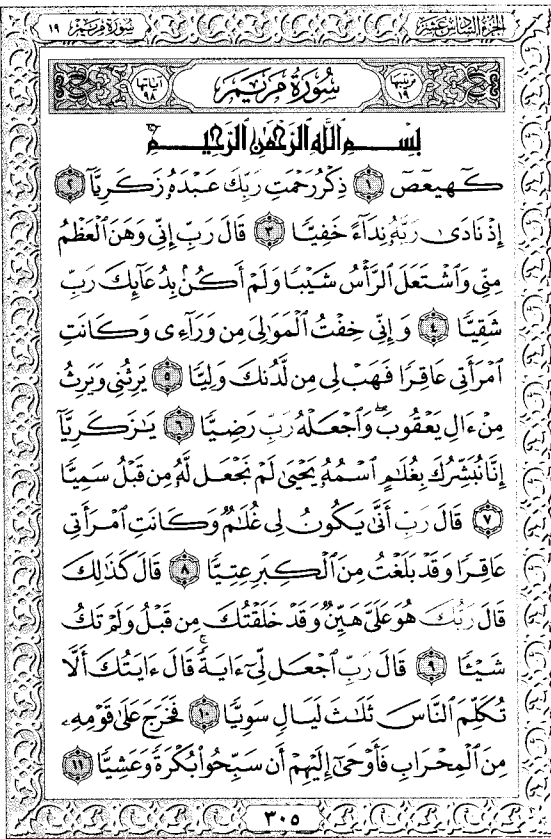 الجزء السادس عشر سورة مريم ١٩
ترتيبها ١٩ سُورَةُ مَرْيَمَ آياتها ٩٨
بِسْمِ ٱللَّهِ ٱلرَّحْمَٰنِ ٱلرَّحِيمِ
كٓهيعٓصٓ ١ ذِكْرُ رَحْمَتِ رَبِّكَ عَبْدَهُۥ زَكَرِيَّآ ٢
إِذْ نَادَىٰ رَبَّهُۥ نِدَآءً خَفِيًّا ٣ قَالَ رَبِّ إِنِّى وَهَنَ ٱلْعَظْمُ
مِنِّى وَٱشْتَعَلَ ٱلرَّأْسُ شَيْبًا وَلَمْ أَكُنۢ بِدُعَآئِكَ رَبِّ
شَقِيًّا ٤ وَإِنِّى خِفْتُ ٱلْمَوَٰلِىَ مِن وَرَآءِى وَكَانَتِ
ٱمْرَأَتِى عَاقِرًا فَهَبْ لِى مِن لَّدُنكَ وَلِيًّا ٥ يَرِثُنِى وَيَرِثُ
مِنْ ءَالِ يَعْقُوبَ ۖ وَٱجْعَلْهُ رَبِّ رَضِيًّا ٦ يَٰزَكَرِيَّآ
إِنَّا نُبَشِّرُكَ بِغُلَٰمٍ ٱسْمُهُۥ يَحْيَىٰ لَمْ نَجْعَل لَّهُۥ مِن قَبْلُ سَمِيًّا
٧ قَالَ رَبِّ أَنَّىٰ يَكُونُ لِى غُلَٰمٌ وَكَانَتِ ٱمْرَأَتِى
عَاقِرًا وَقَدْ بَلَغْتُ مِنَ ٱلْكِبَرِ عِتِيًّا ٨ قَالَ كَذَٰلِكَ
قَالَ رَبُّكَ هُوَ عَلَىَّ هَيِّنٌ وَقَدْ خَلَقْتُكَ مِن قَبْلُ وَلَمْ تَكُ
شَيْـًٔا ٩ قَالَ رَبِّ ٱجْعَل لِّىٓ ءَايَةً ۚ قَالَ ءَايَتُكَ أَلَّا
تُكَلِّمَ ٱلنَّاسَ ثَلَٰثَ لَيَالٍ سَوِيًّا ١٠ فَخَرَجَ عَلَىٰ قَوْمِهِۦ
مِنَ ٱلْمِحْرَابِ فَأَوْحَىٰٓ إِلَيْهِمْ أَن سَبِّحُوا۟ بُكْرَةً وَعَشِيًّا ١١
٣٠٥